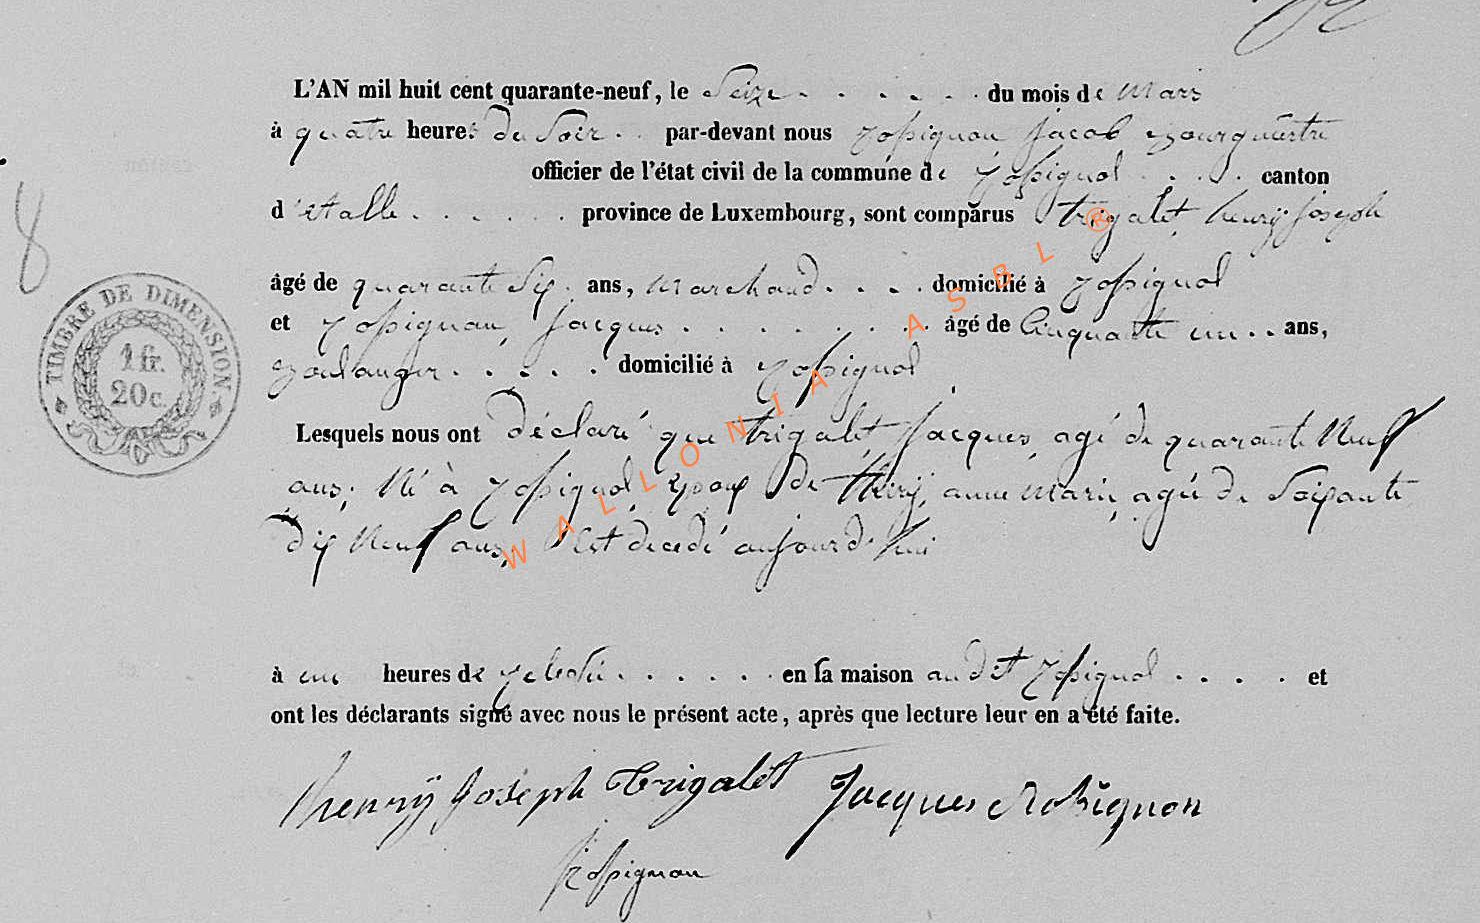 L'AN mil huit cent quarante-neuf, le Seize . . . . . . du mois de Mars
à quatre heures du Soir . . par-devant nous Rossignon Jacob Bourguestre
officier de l'état civil de la commune de Rossignol . . . . canton
d'Etalle . . . . . . province de Luxembourg, sont comparus Trigalet, henrÿ Joseph
âgé de quarante Six . ans, Marchand . . . . domicilié à Rossignol
et Rossignon, Jacques . . . . . . . . . âgé de Cinquante un . . ans,
Boulanger . . . . . domicilié à Rossignol
Lesquels nous ont déclaré que Trigalet Jacques, agé de quarante Neuf
ans, Né à Rossignol, Epoux de thiry, anne Marie, agée de Soixante
dix Neuf ans, Est decedé aujourd'hui
à une heures de Relevée . . . . . . en sa maison au dit Rossignol . . . . et
ont les déclarants signé avec nous le présent acte, après que lecture leur en a été faite.
henrÿ Joseph Trigalet Jacques Rossignon
Rossignon
8
TIMBRE DE DIMENSION
1 fr.
20 c.
WALLONIA ASBL ®